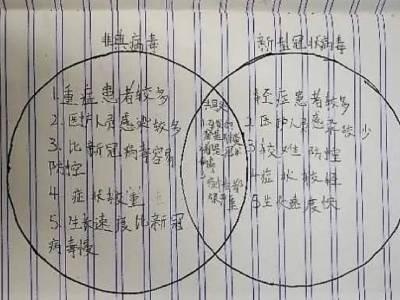 非典病毒
新型冠状病毒
1. 重症患者较多
2. 医护人员感染较多
3. 比新冠病毒容易
防控
4. 症状较重
5. 生长速度比新冠
病毒慢
轻症患者较多
2. 医护人员感染较少
3. 较难防控
4 症状较轻
5 生长速度快